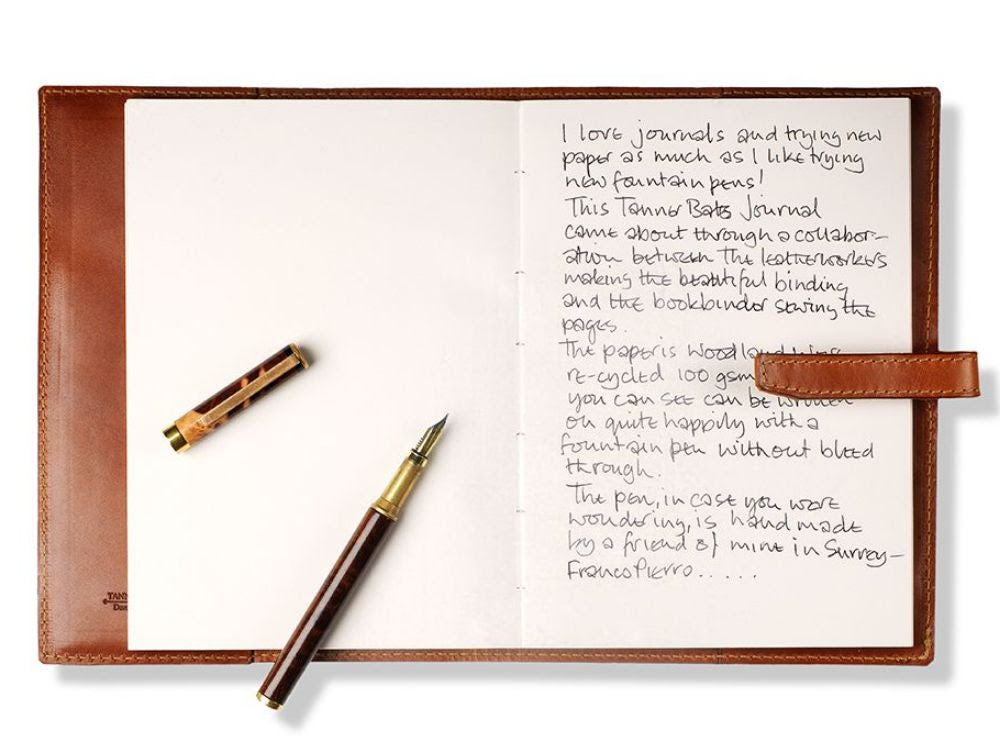 TANN
Dun
I love journals and trying new
paper as much as I like trying
new fountain pens!
This Tanner Bates Journal
came about through a collabor-
ation between the leatherworkers
making the beautiful binding
and the bookbinder sewing the
pages.
The paper is Woodland
re-cycled 100 gsm
you can see can be written
on quite happily with a
fountain pen without bleed
through.
The pen, in case you were
wondering, is hand made
by a friend of mine in Surrey –
Franco Pierro.....